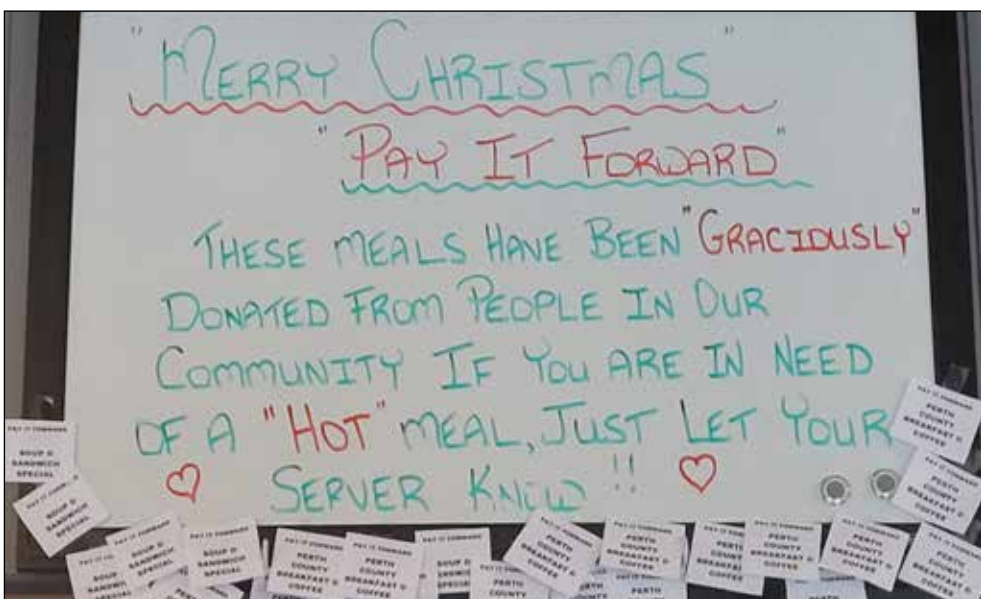 "MERRY CHRISTMAS"
"PAY IT FORWARD"
THESE MEALS HAVE BEEN "GRACIOUSLY"
DONATED FROM PEOPLE IN OUR
COMMUNITY IF YOU ARE IN NEED
OF A "HOT" MEAL, JUST LET YOUR
SERVER KNOW!!
PAY IT FORWARD
SOUP &
SANDWICH
SPECIAL
PAY IT FORWARD
SOUP &
SANDWICH
SPECIAL
PAY IT FORWARD
SOUP &
SANDWICH
SPECIAL
PAY IT FORWARD
SOUP &
SANDWICH
SPECIAL
PAY IT FORWARD
PERTH
COUNTY
BREAKFAST &
COFFEE
PAY IT FORWARD
PERTH
COUNTY
BREAKFAST &
COFFEE
PAY IT FORWARD
PERTH
COUNTY
BREAKFAST &
COFFEE
PAY IT FORWARD
PERTH
COUNTY
BREAKFAST &
COFFEE
PAY IT FORWARD
PERTH
COUNTY
BREAKFAST &
COFFEE
PAY IT FORWARD
PERTH
COUNTY
BREAKFAST &
COFFEE
PAY IT FORWARD
PERTH
COUNTY
BREAKFAST &
COFFEE
PAY IT FORWARD
PERTH
COUNTY
BREAKFAST &
COFFEE
PAY IT FORWARD
PERTH
COUNTY
BREAKFAST &
COFFEE